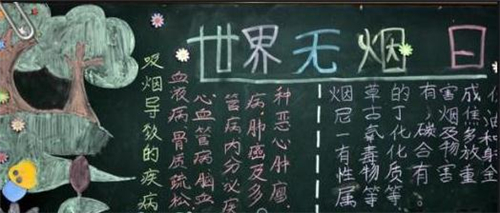 世界无烟日
吸烟导致的疾病
血液病,骨质疏松
心血管病,脑血
管病,内分泌疾
病,肺癌及多
种恶心肿瘤
烟草的有害成
尼古丁、烟焦油
一氧化碳及多种
有毒化合物放射
性物质有害重金
属等等